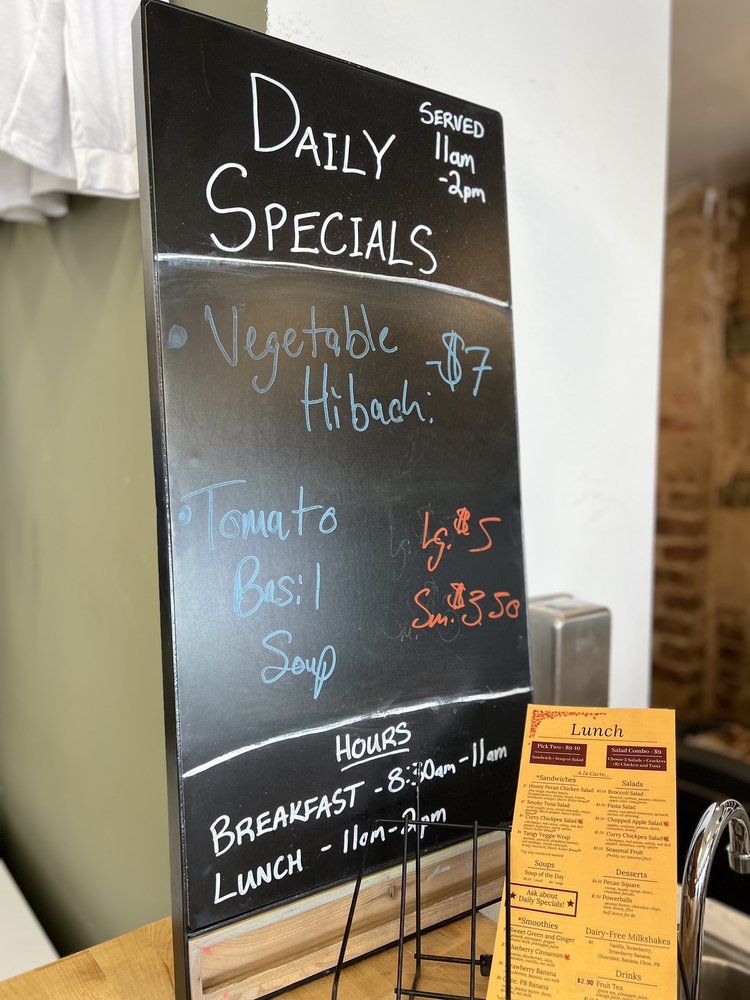 DAILY
SPECIALS
SERVED
11am
-2pm
• Vegetable
Hibachi
-$7
• Tomato
Basil
Soup
Lg. $5
Sm. $3.50
HOURS
BREAKFAST - 8:30am - 11am
LUNCH - 11am - 2pm
Lunch
Pick Two - $9-10
Sandwich + Soup or Salad
Salad Combo - $9
Choose 3 Salads + Crackers
+$2 Chicken and Tuna
A la Carte...
*Sandwiches
Honey Pecan Chicken Salad
Smoky Tuna Salad
Curry Chickpea Salad
Tangy Veggie Wrap
Soups
Soup of the Day
Ask about
Daily Specials!
*Smoothies
Sweet Green and Ginger
Blueberry Cinnamon
Strawberry Banana
Choc, PB Banana
Salads
Broccoli Salad
Pasta Salad
Chopped Apple Salad
Curry Chickpea Salad
Seasonal Fruit
freshly cut seasonal fruit
Desserts
Pecan Square
Powerballs
Dairy-Free Milkshakes
Vanilla, Strawberry,
Strawberry Banana,
Chocolate, Banana, Choc, PB
Drinks
$2.90 Fruit Tea